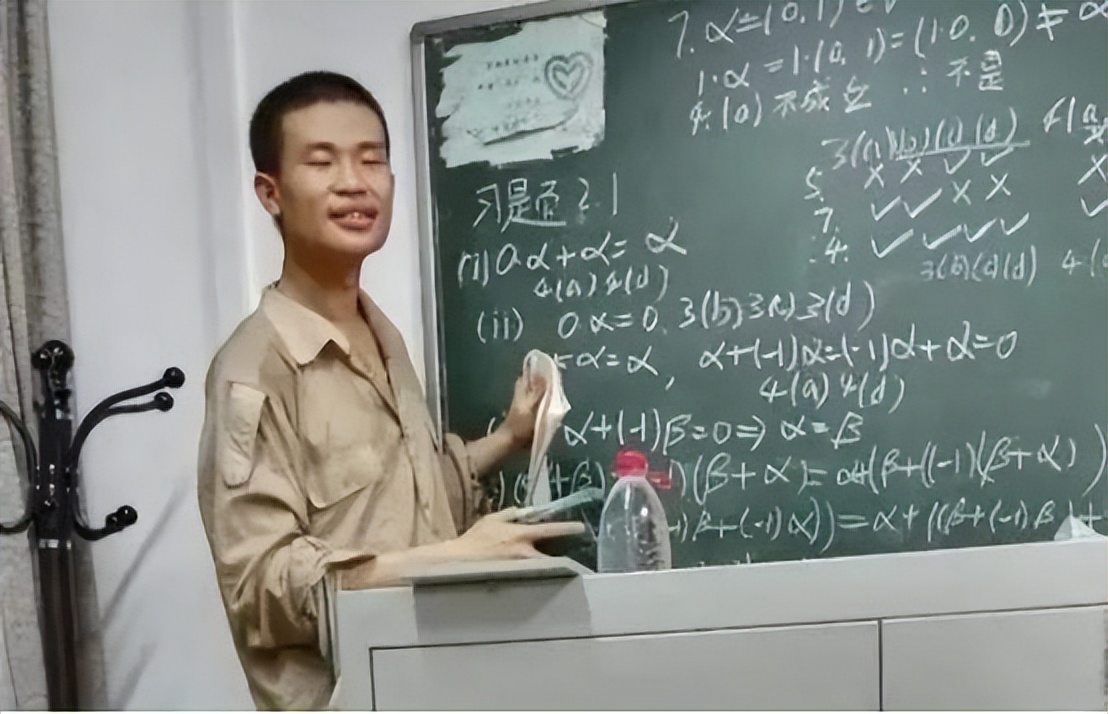 7. α=(0,1)∈V
1·α=1·(0,1)=(1·0,0)≠α
4(a)不成立 ∴不是
3(a)(b)(c)(d) 4(a
5. × × ✓ ✓ ×
7. ✓ ✓ × × ✓
4. ✓ ✓ ✓ ✓
3(b)(c)(d) 4(
习题 2.1
(i) 0α+α=α
4(a) 4(d)
(ii) 0α=0. 3(b) 3(c) 3(d)
α=α, α+(-1)α=(-1)α+α=0
4(a) 4(d)
α+(-1)β=0⇒α=β
+β) 1)(β+α)=α+(β+((-1)(β+α))
1)β+(-1)α))=α+((β+(-1)β)+